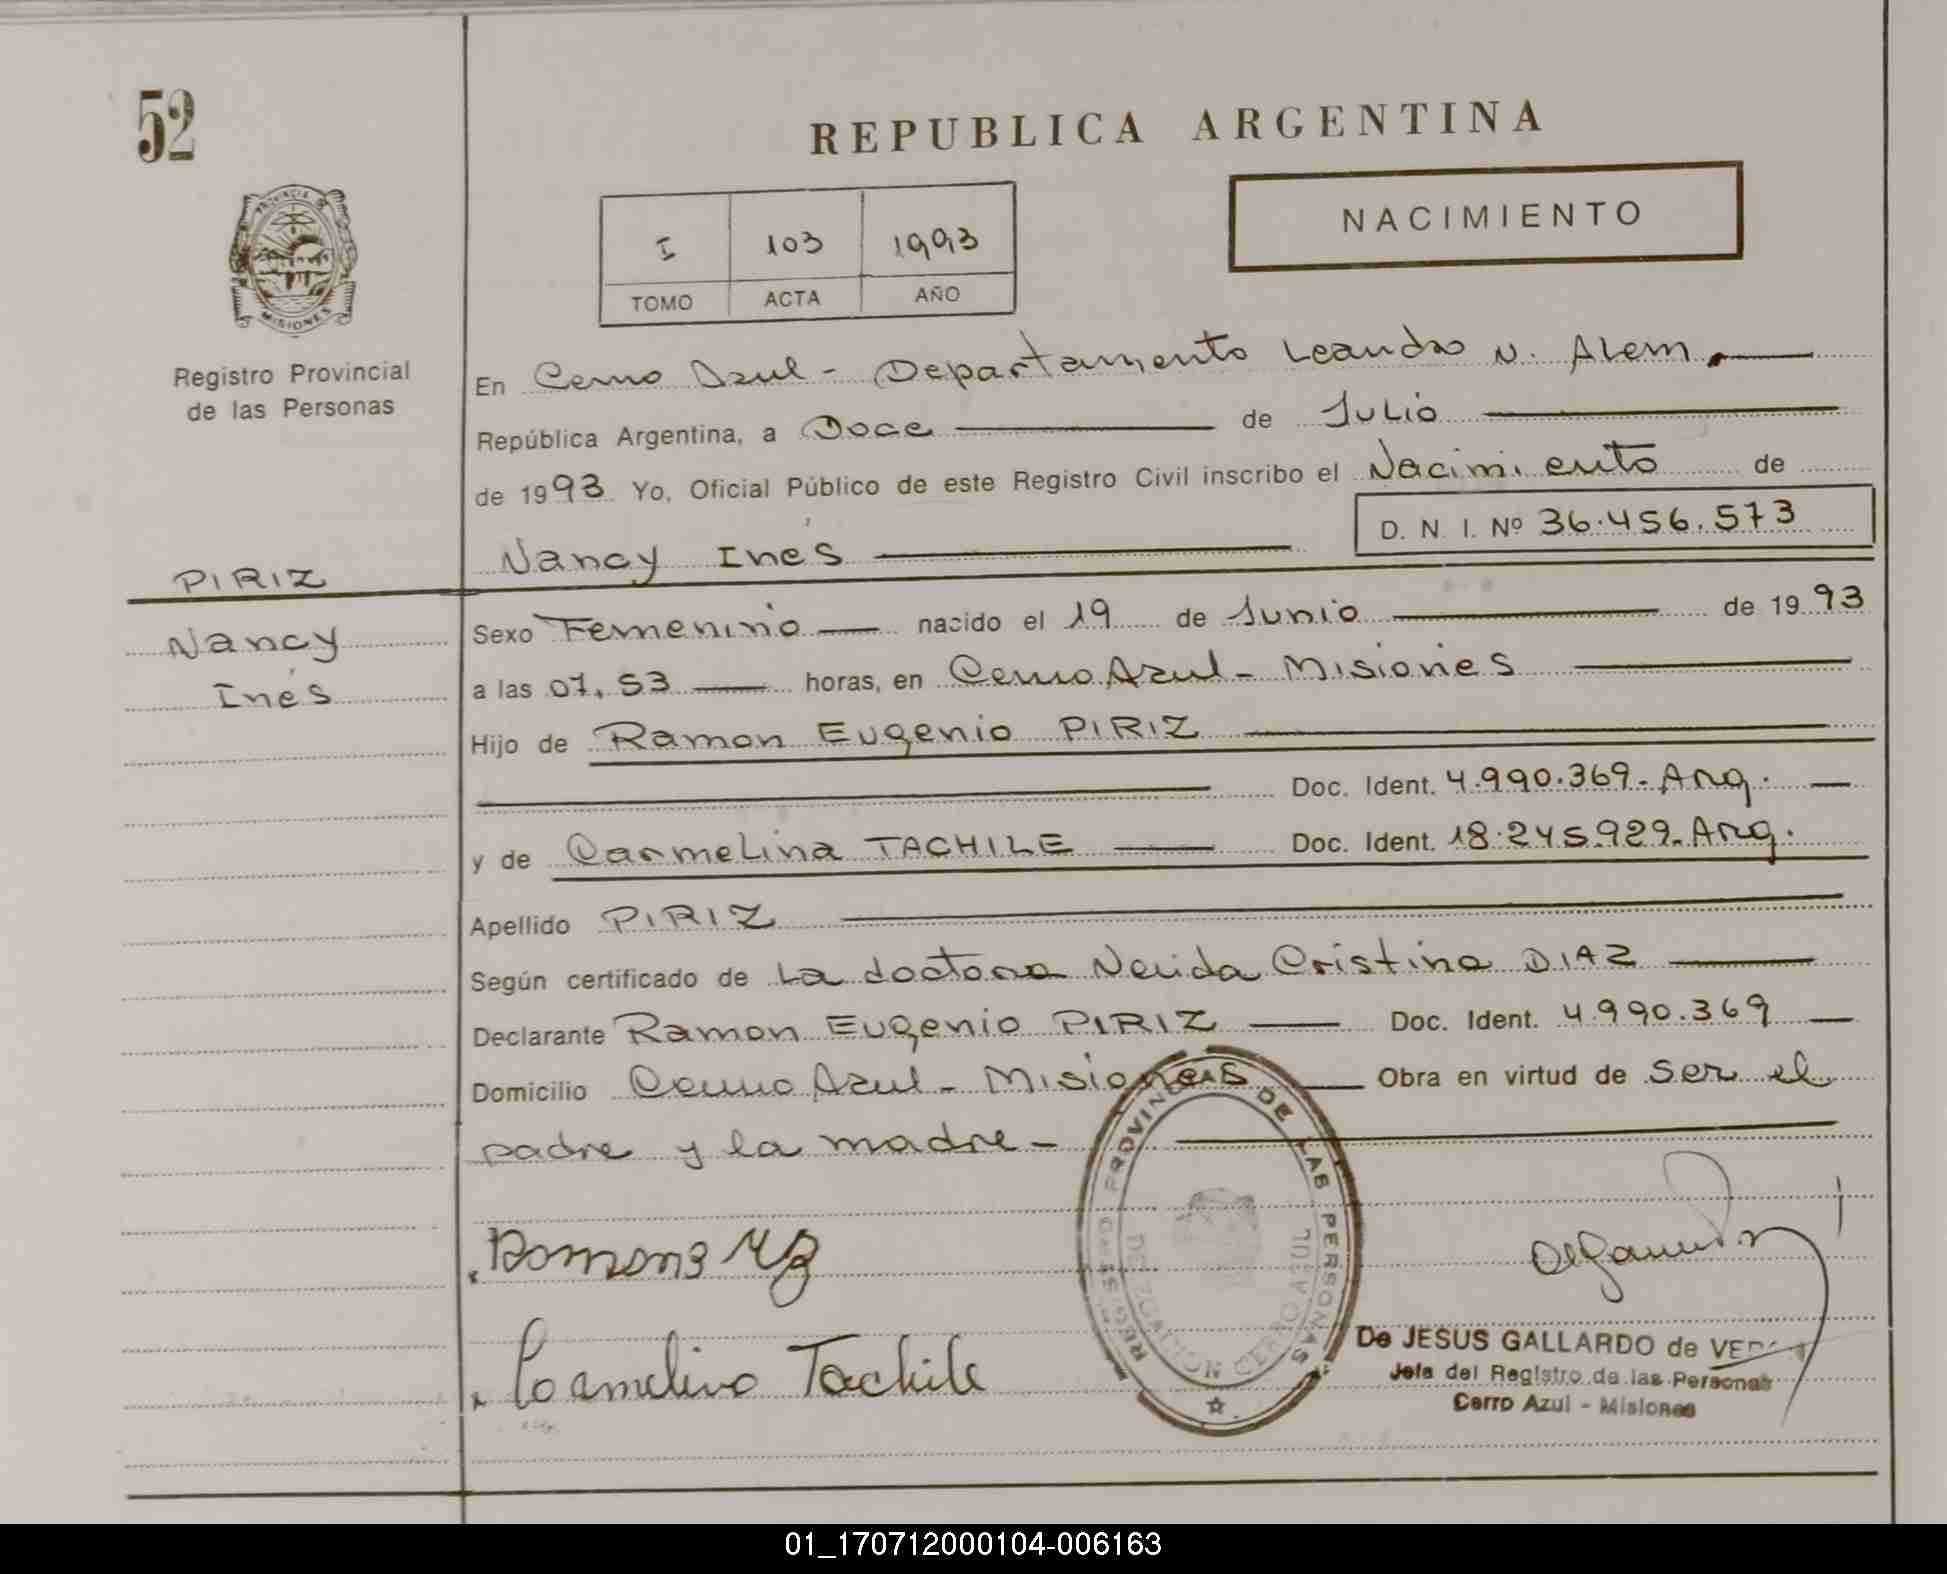 52
REPUBLICA ARGENTINA
NACIMIENTO
I 103 1993
TOMO ACTA AÑO
PROVINCIA DE
MISIONES
Registro Provincial
de las Personas
En Cerro Azul - Departamento Leandro N. Alem
República Argentina, a Doce de Julio
de 1993 Yo, Oficial Público de este Registro Civil inscribo el Nacimiento de
D. N. I. Nº 36.456.573
Nancy Inés
PIRIZ
Nancy
Inés
Sexo Femenino nacido el 19 de Junio de 1993
a las 07,53 horas, en Cerro Azul - Misiones
Hijo de Ramon Eugenio PIRIZ
Doc. Ident. 4.990.369- Arg.
y de Carmelina TACHILE Doc. Ident. 18.245.929- Arg.
Apellido PIRIZ
Según certificado de La doctora Cristina DIAZ
Declarante Ramon Eugenio PIRIZ Doc. Ident. 4.990.369
Domicilio Cerro Azul - Misiones Obra en virtud de ser el
padre y la madre -
REGISTRO PROVINCIAL DE LAS PERSONAS
DELEGACION CERRO AZUL
Tachile
De JESUS GALLARDO de
Jefa del Registro de las Personas
Cerro Azul - Misiones
01_170712000104-006163